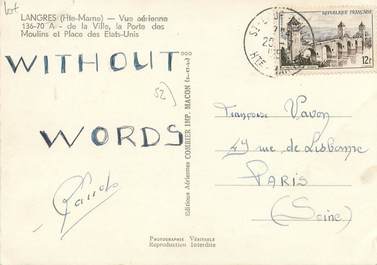 Lot
LANGRES (Hte-Marne) — Vue aérienne
136-70 A - de la Ville, la Porte des
Moulins et Place des Etats-Unis
WITHOUT
52)
WORDS
Editions Aériennes COMBIER IMP. MACON
PHOTOGRAPHIE VÉRITABLE
Reproduction Interdite
REPUBLIQUE FRANÇAISE
12F
Françoise Vavon
49 rue de Lisbonne
PARIS
(Seine)